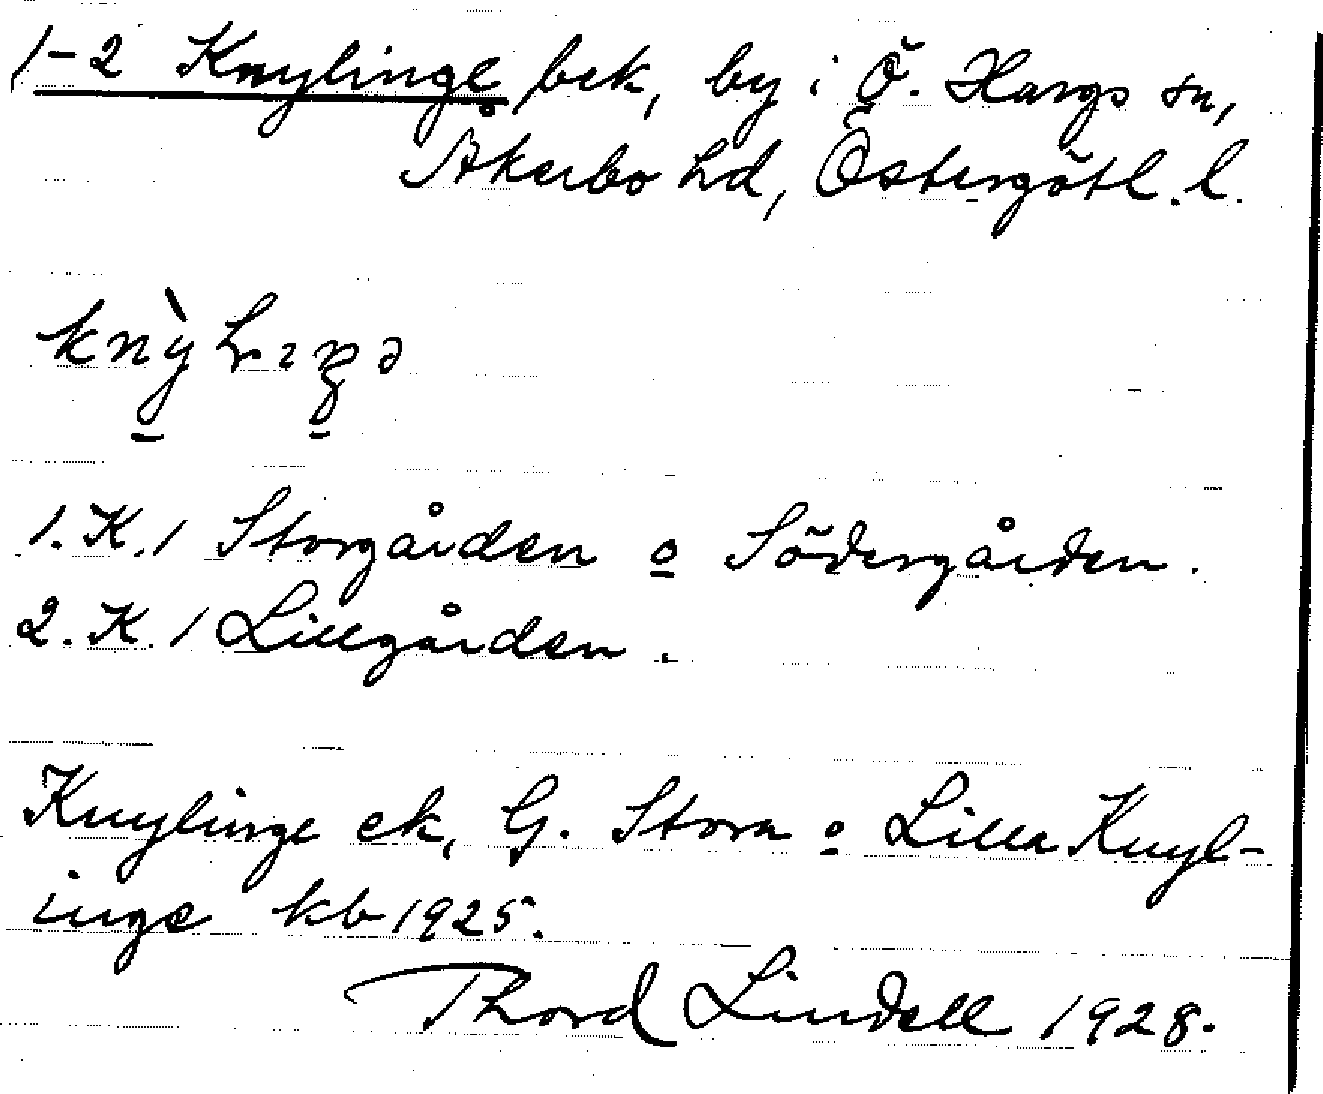 1-2 Knylinge, bek, by i Ö. Hargs sn,
Åkerbo hd, Östergötl. l.
1. K. / Storgården o Södergården.
2. K. / Lillgården.
Knylinge ek, G. Stora o Lilla Knyl-
inge kb 1925.
Thord Lindell 1928.